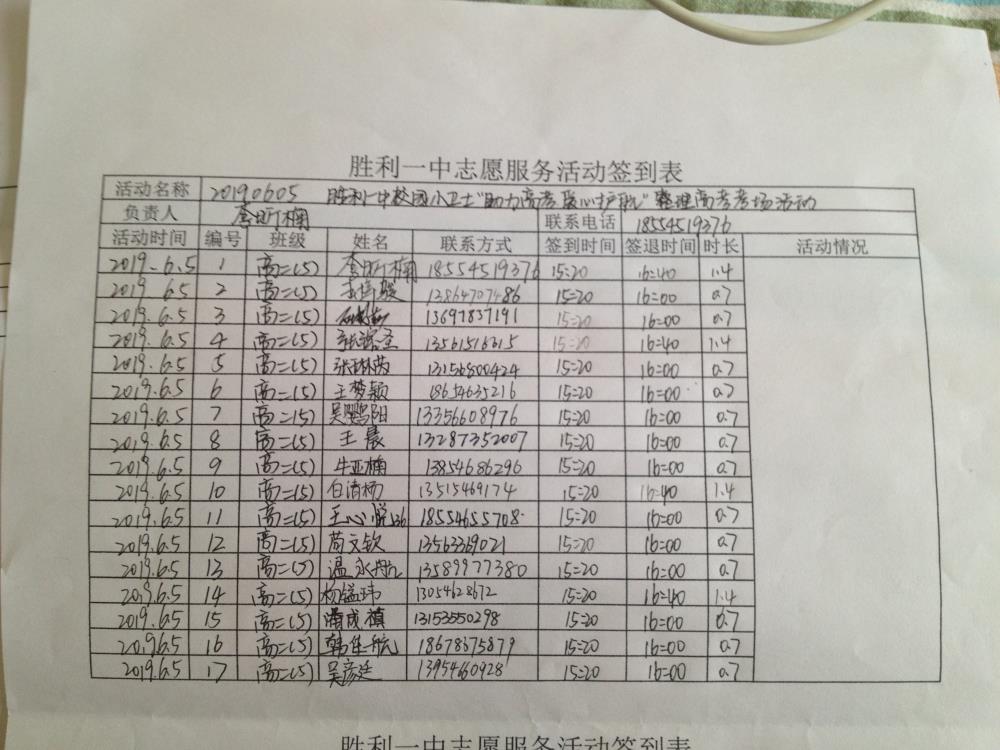 胜利一中志愿服务活动签到表
活动名称 20190605 胜利一中校园小卫士"助力高考 爱心护航"整理高考考场活动
负责人 李昕楠 联系电话 18554519376
活动时间 编号 班级 姓名 联系方式 签到时间 签退时间 时长 活动情况
2019.6.5 1 高二(5) 李昕楠 18554519376 15:20 16:40 1.4
2019.6.5 2 高二(5) 13864707486 15:20 16:00 0.7
2019.6.5 3 高二(5) 13697837191 15:20 16:00 0.7
2019.6.5 4 高二(5) 13561516615 15:20 16:40 1.4
2019.6.5 5 高二(5) 张琳芮 13156800424 15:20 16:00 0.7
2019.6.5 6 高二(5) 王梦颖 18654635216 15:20 16:00 0.7
2019.6.5 7 高二(5) 吴鹦阳 13356608976 15:20 16:00 0.7
2019.6.5 8 高二(5) 王晨 13287352007 15:20 16:00 0.7
2019.6.5 9 高二(5) 牛亚楠 13854686296 15:20 16:00 0.7
2019.6.5 10 高二(5) 白清杨 13515469174 15:20 16:40 1.4
2019.6.5 11 高二(5) 王心悦 18554655708 15:20 16:00 0.7
2019.6.5 12 高二(5) 荀文钦 13563369021 15:20 16:00 0.7
2019.6.5 13 高二(5) 温永航 13589977380 15:20 16:00 0.7
2019.6.5 14 高二(5) 杨镒玮 13054628672 15:20 16:40 1.4
2019.6.5 15 高二(5) 13153550298 15:20 16:00 0.7
2019.6.5 16 高二(5) 韩佳航 18678675879 15:20 16:00 0.7
2019.6.5 17 高二(5) 吴彦廷 13954660928 15:20 16:00 0.7
胜利一中志愿服务活动签到表